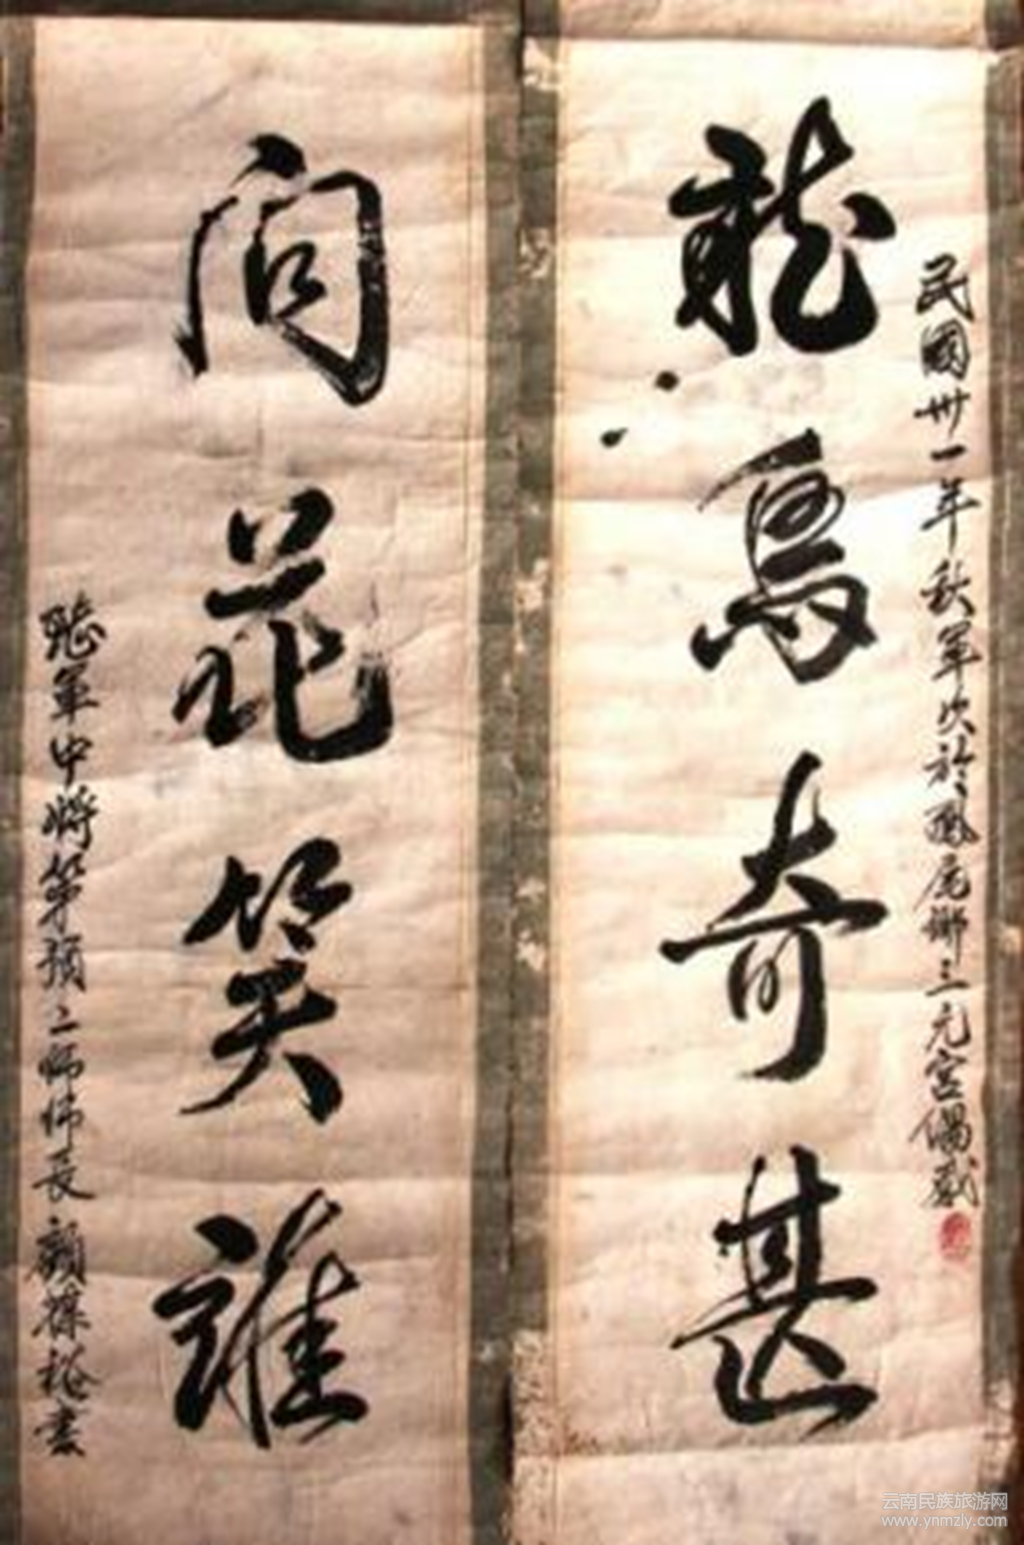 民國卅一年秋軍次於鳳尾鄉三元宮偶感
龍鳥奇甚
问花笑誰
陸軍中將第預二師師長顧葆裕書
云南民族旅游网
www.ynmzly.com